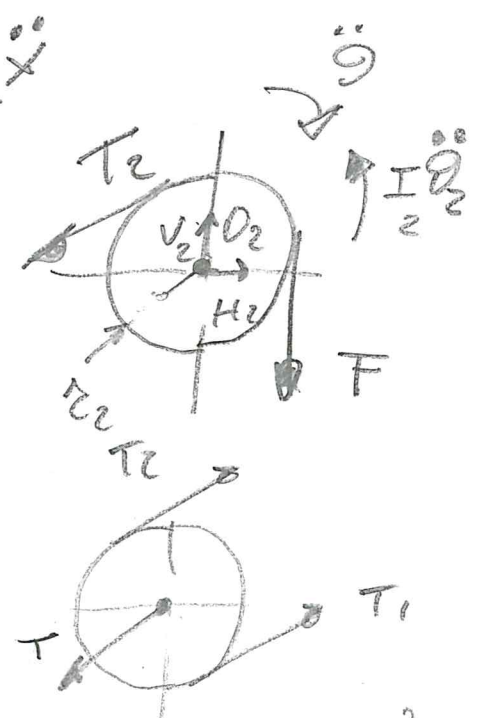 ẍ
ϑ̈
T₂
I₂ϑ̈₂
V₂ O₂
H₂
F
r₂
T₂
T₁
T